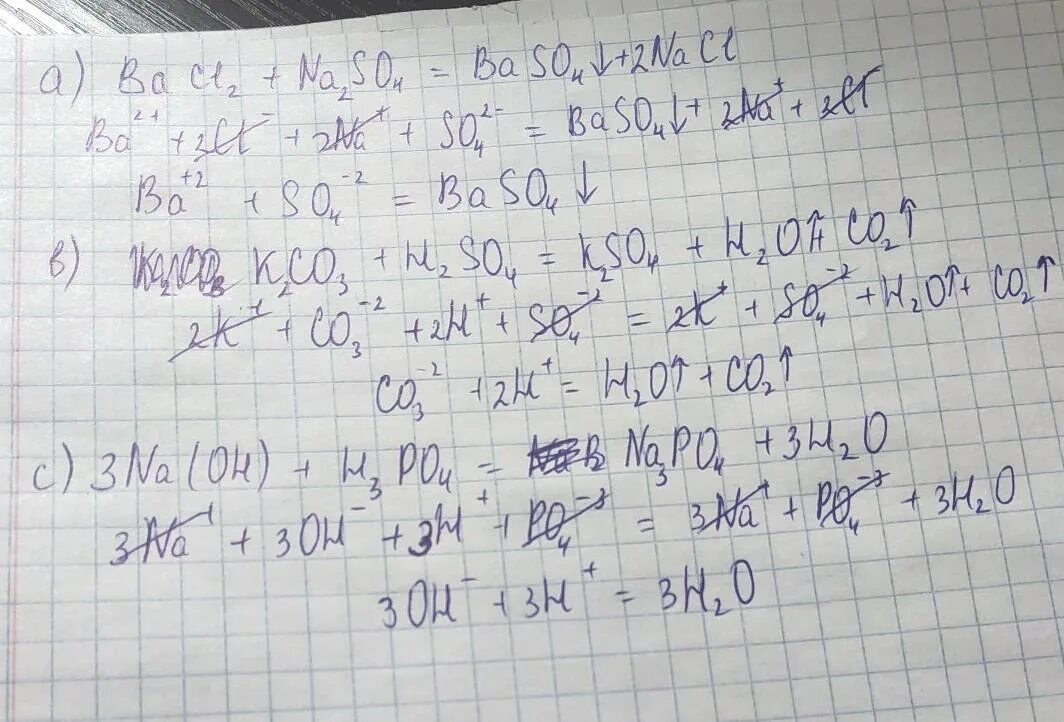 а) BaCl₂ + Na₂SO₄ = BaSO₄↓ + 2NaCl
Ba²⁺ + 2Cl⁻ + 2Na⁺ + SO₄²⁻ = BaSO₄↓ + 2Na⁺ + 2Cl⁻
Ba⁺² + SO₄⁻² = BaSO₄↓
в) K₂CO₃ + H₂SO₄ = K₂SO₄ + H₂O↑ + CO₂↑
2K⁺ + CO₃⁻² + 2H⁺ + SO₄⁻² = 2K⁺ + SO₄⁻² + H₂O↑ + CO₂↑
CO₃⁻² + 2H⁺ = H₂O↑ + CO₂↑
с) 3Na(OH) + H₃PO₄ = Na₃PO₄ + 3H₂O
3Na⁺ + 3OH⁻ + 3H⁺ + PO₄⁻³ = 3Na⁺ + PO₄⁻³ + 3H₂O
3OH⁻ + 3H⁺ = 3H₂O